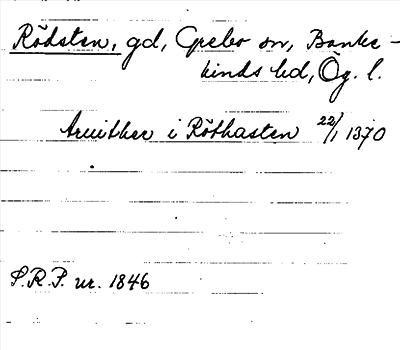 Rödsten, gd, Grebo sn, Banke-
kinds hd, Ög. l.
Aruither i Röthasten 22/1 1370
S.R.P. nr. 1846